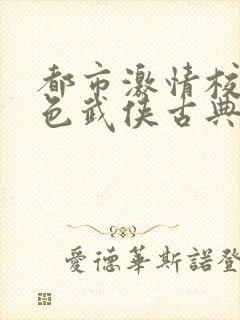 都市激情校
色武侠古典
愛德華斯諾登